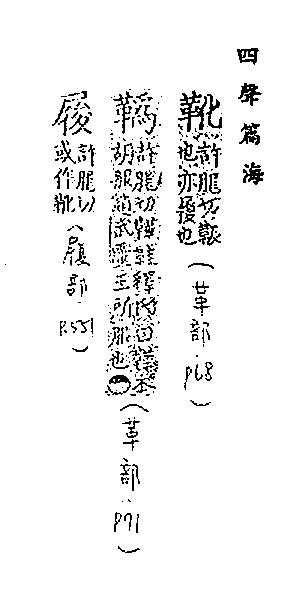 四聲篇海
靴 許肥切鞍
也亦履也(革部.P68)
鞽 許肥切鞾鞋釋名曰鞾本
胡服趙武靈王所服也(革部.P71)
許肥切
或作靴(履部.P.551)